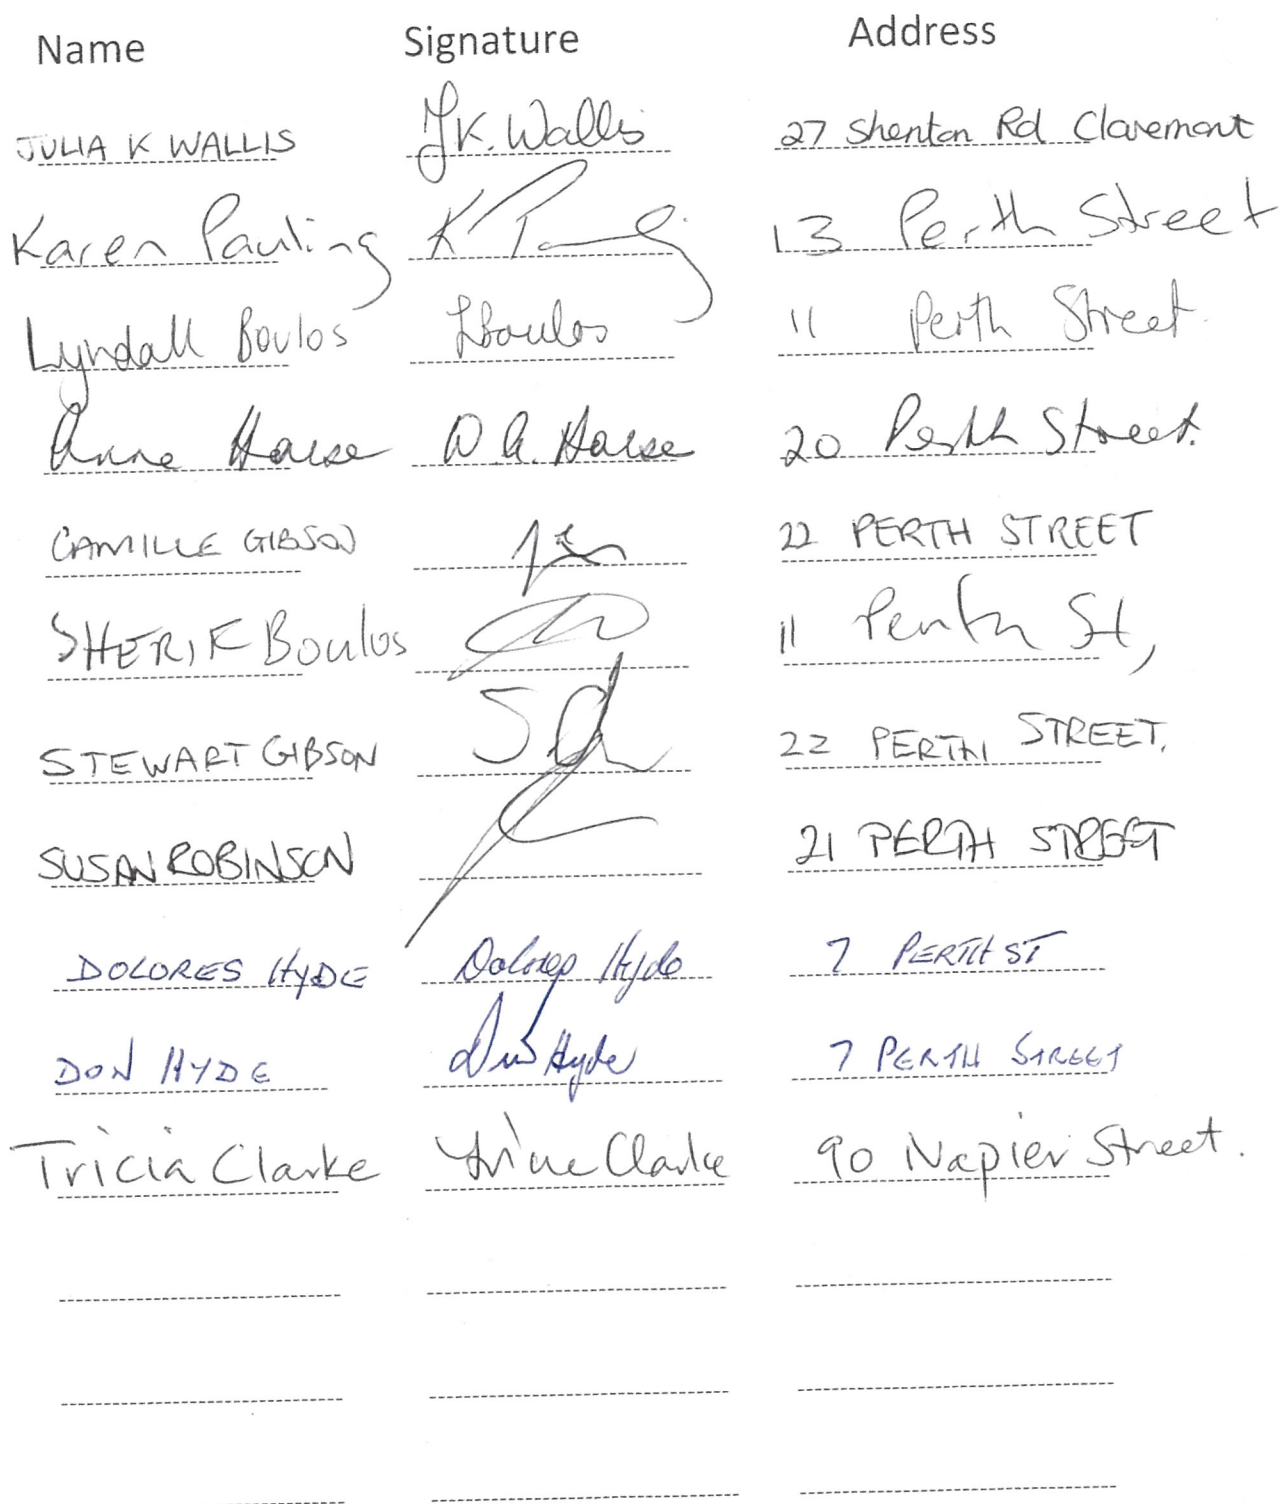 Name Signature Address
JULIA K WALLIS JK. Wallis 27 Shenton Rd Claremont
Karen Pauling K 13 Perth Street
Lyndall Boulos LBoulos 11 Perth Street.
Anne House 20 Perth Street.
CAMILLE GIBSON 22 PERTH STREET
SHERIF Boulos 11 Perth St,
STEWART GIBSON 22 PERTH STREET.
SUSAN ROBINSON 21 PERTH STREET
DOLORES HYDE Dolores Hyde 7 PERTH ST
DON HYDE Don Hyde 7 PERTH STREET
Tricia Clarke Clarke 90 Napier Street.